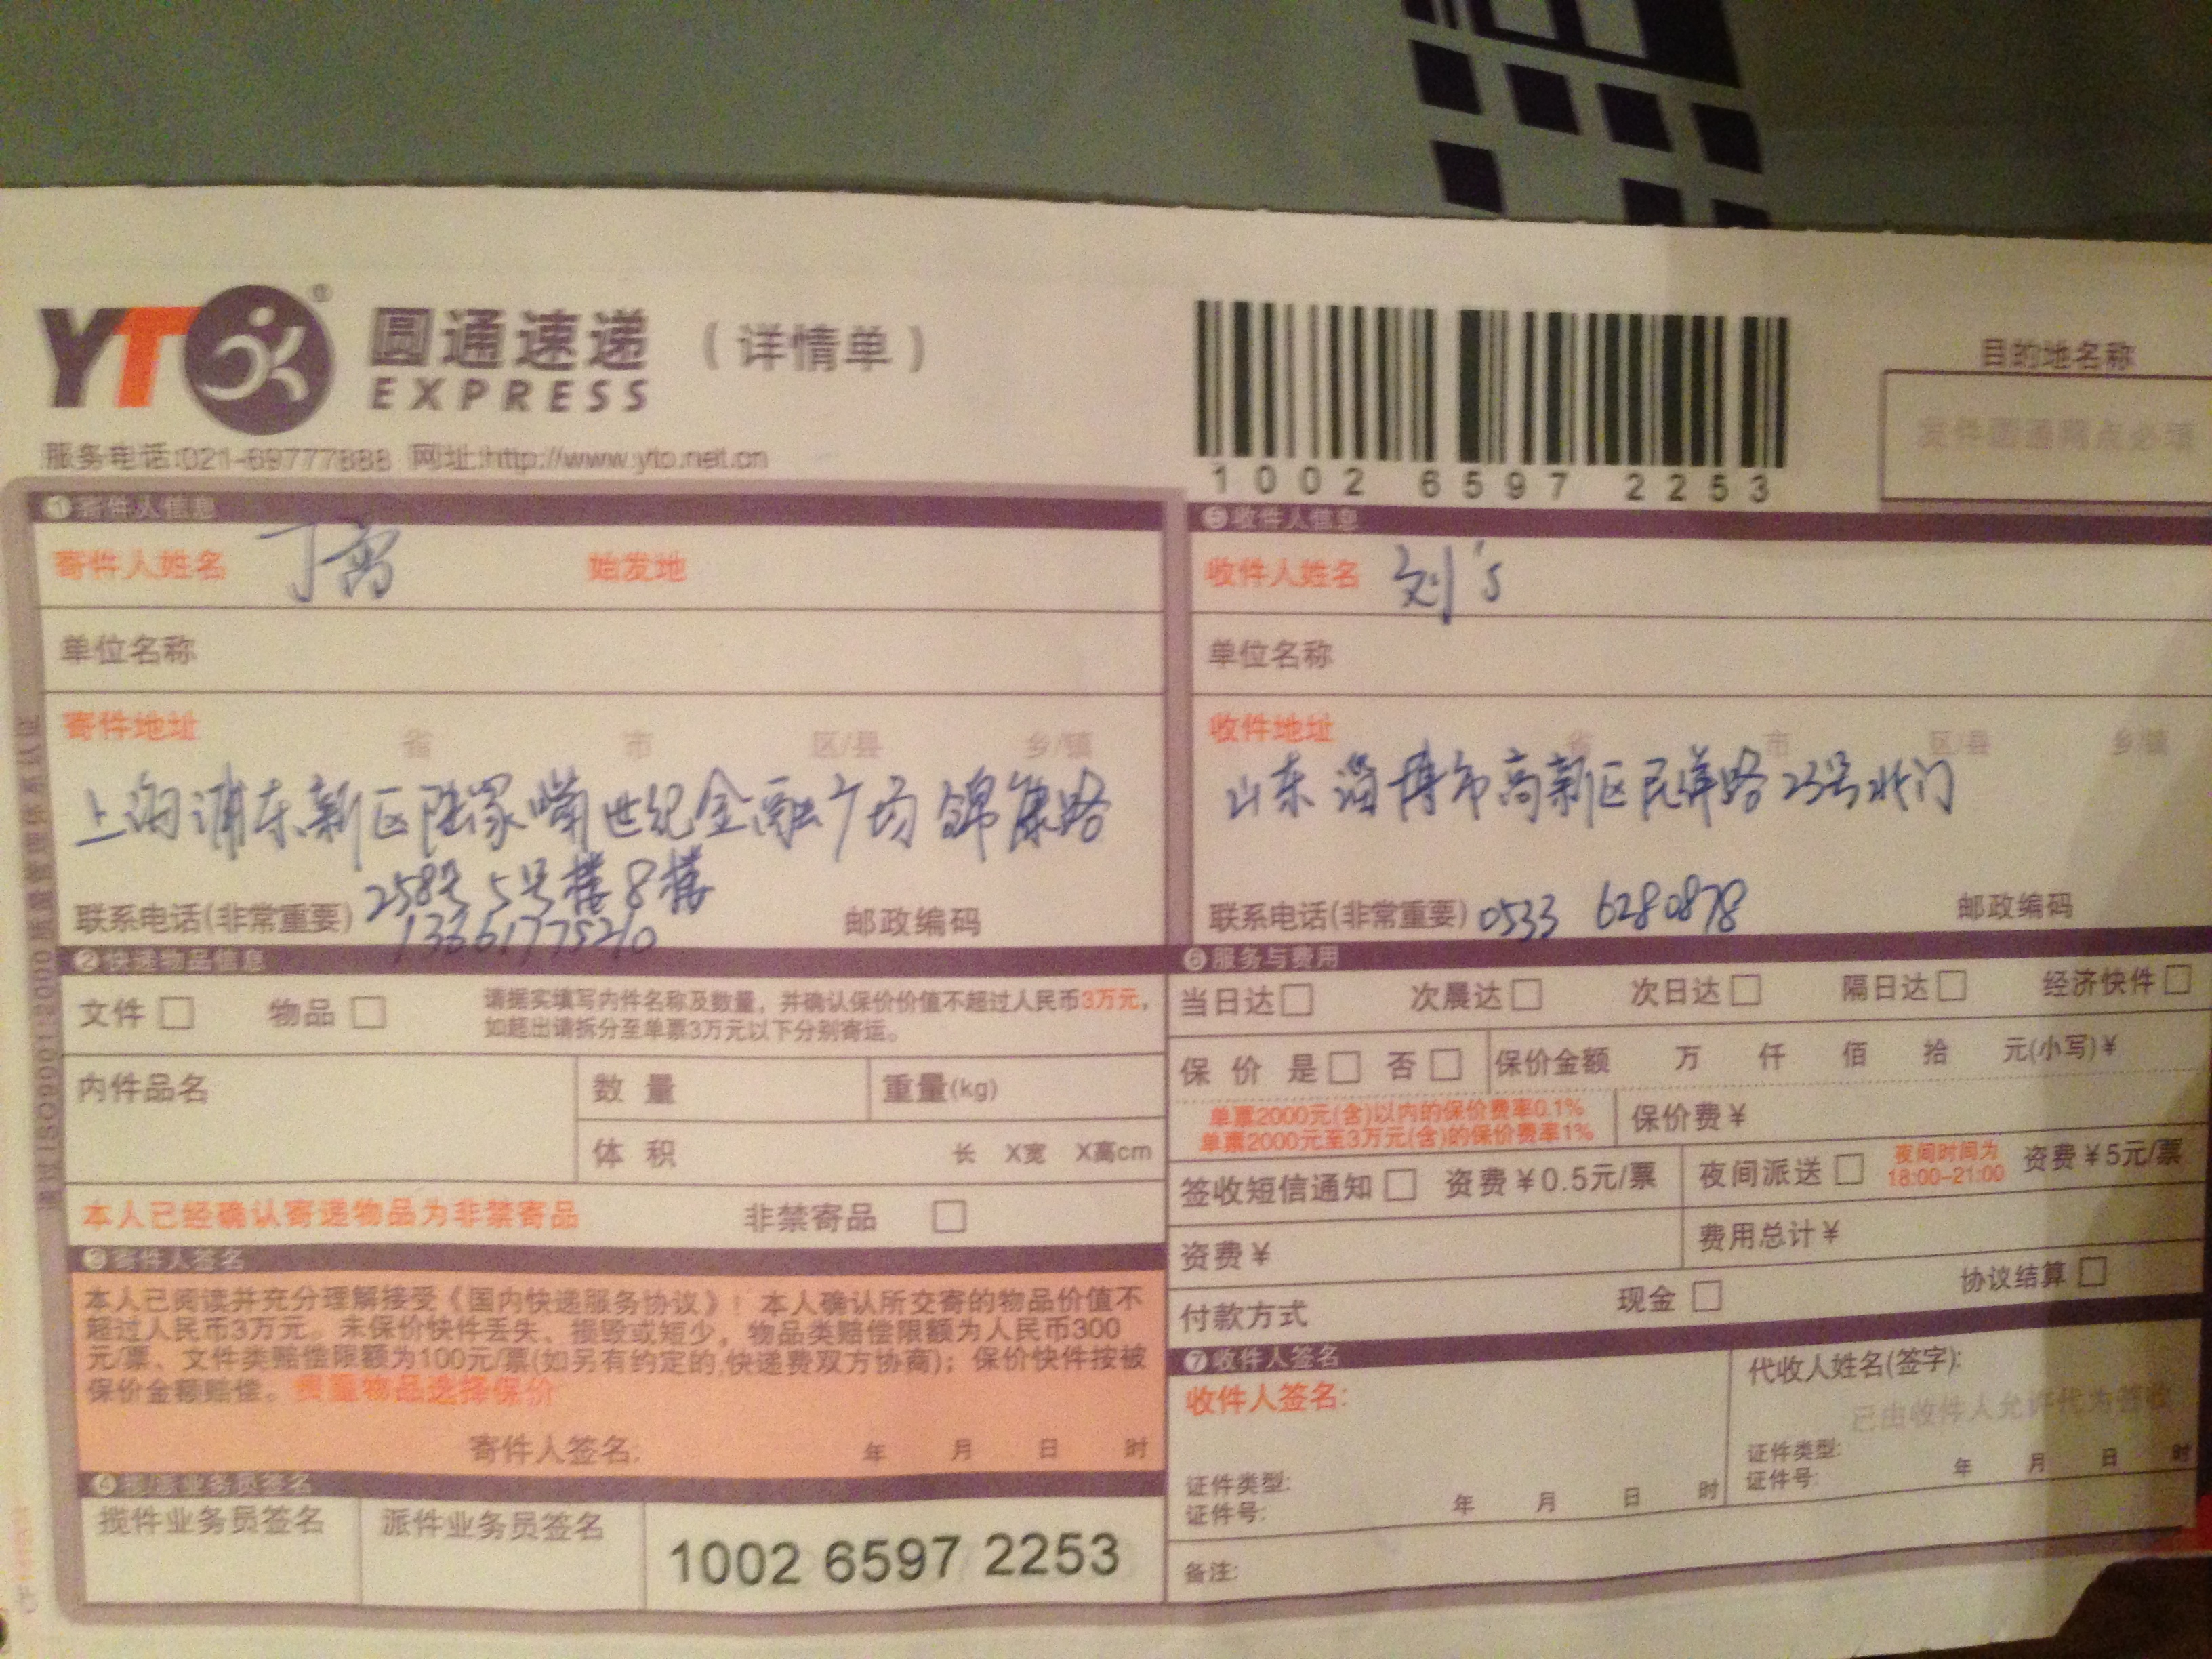 YTO
圆通速递
（详情单）
EXPRESS
服务电话:021-69777888 网址:http://www.yto.net.cn
1 0 0 2 6 5 9 7 2 2 5 3
目的地名称
通过ISO9001:2000质量管理体系认证
❶寄件人信息
寄件人姓名
始发地
单位名称
寄件地址
省 市 区/县 乡/镇
上海浦东新区陆家嘴世纪金融广场锦康路
258号5号楼8楼
联系电话(非常重要)
13361775210
邮政编码
❷快递物品信息
文件□ 物品□
请据实填写内件名称及数量，并确认保价价值不超过人民币3万元，
如超出请拆分至单票3万元以下分别寄运。
内件品名
数量
重量(kg)
体积
长 X宽 X高cm
本人已经确认寄递物品为非禁寄品
非禁寄品 □
❸寄件人签名
本人已阅读并充分理解接受《国内快递服务协议》！本人确认所交寄的物品价值不
超过人民币3万元。未保价快件丢失、损毁或短少，物品类赔偿限额为人民币300
元/票、文件类赔偿限额为100元/票(如另有约定的,快递费双方协商)；保价快件按被
保价金额赔偿。贵重物品选择保价
寄件人签名:
年 月 日 时
揽件业务员签名
派件业务员签名
1002 6597 2253
❺收件人信息
收件人姓名
刘's
单位名称
收件地址
省 市 区/县 乡/镇
山东淄博市高新区民祥路25号北门
联系电话(非常重要) 0533 6280878
邮政编码
❻服务与费用
当日达□ 次晨达□ 次日达□ 隔日达□ 经济快件□
保价 是□ 否□
保价金额 万 仟 佰 拾 元(小写)¥
单票2000元(含)以内的保价费率0.1%
单票2000元至3万元(含)的保价费率1%
保价费¥
签收短信通知□ 资费¥0.5元/票
夜间派送□
夜间时间为
18:00-21:00
资费¥5元/票
资费¥
费用总计¥
付款方式
现金□
协议结算□
❼收件人签名
收件人签名:
证件类型:
证件号:
年 月 日 时
代收人姓名(签字):
证件类型:
证件号:
年 月 日 时
备注: